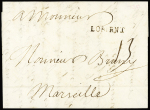 a Monsieur
LORIENT
Monsieur Bruny
13
Marseille